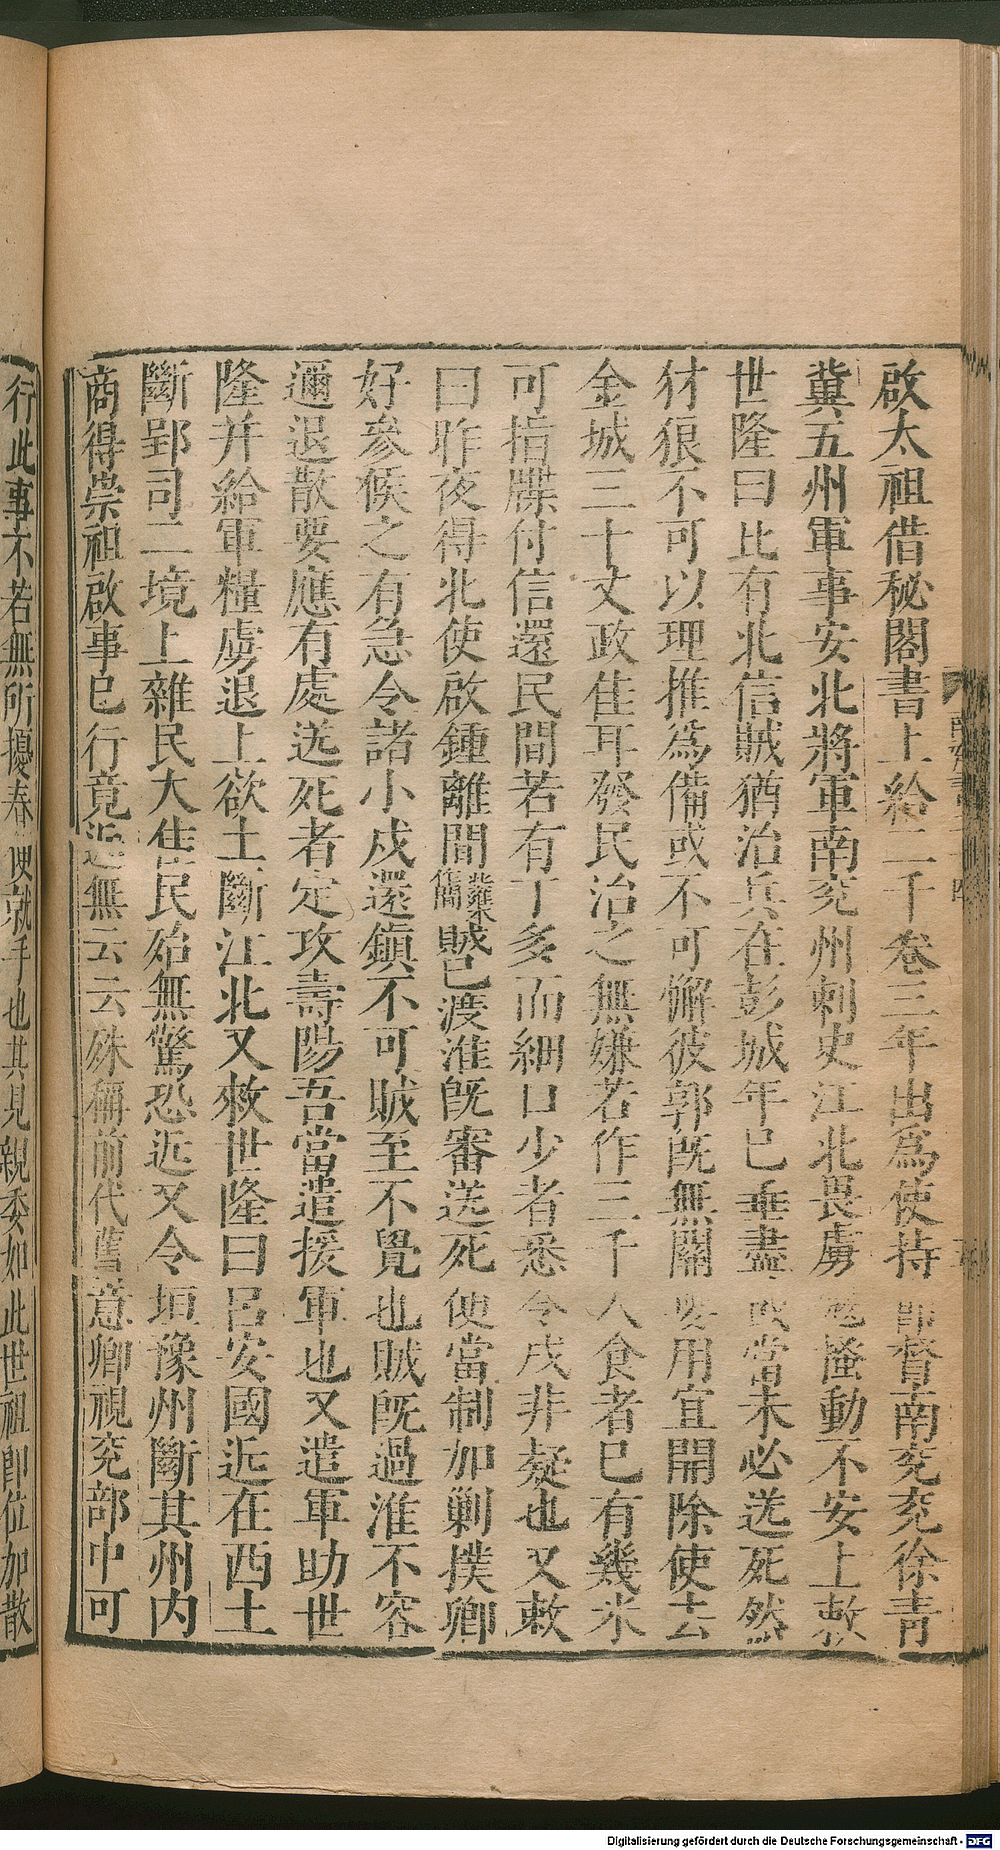 啟太祖借秘閣書上給二千卷三年出爲使持 督南兖兖徐青
冀五州軍事安北將軍南兖州刺史江北畏虜 搔動不安上敕
世隆曰比有北信賊猶治兵在彭城年已垂盡 當未必送死然
豺狼不可以理推爲備或不可懈彼郭既無關要用宜開除使去
金城三十丈政佳耳發民治之無嫌若作三千人食者已有幾米
可指牒付信還民間若有丁多而細口少者悉令戍非疑也又敕
曰昨夜得北使啟鍾離間 賊已渡淮旣審送死便當制加剿撲卿
好參候之有急令諸小戍還鎮不可賊至不覺也賊旣過淮不容
邇退散要應有處送死者定攻壽陽吾當遣援軍也又遣軍助世
隆并給軍糧虜退上欲土斷江北又敕世隆曰呂安國近在西土
斷郢司二境上雜民大佳民殆無驚恐近又令垣豫州斷其州內
商得崇祖啟事已行竟近無云云殊稱前代舊意卿視兖部中可
行此事不若無所擾春便就手也其見親委如此世祖即位加散
Digitalisierung gefördert durch die Deutsche Forschungsgemeinschaft - DFG